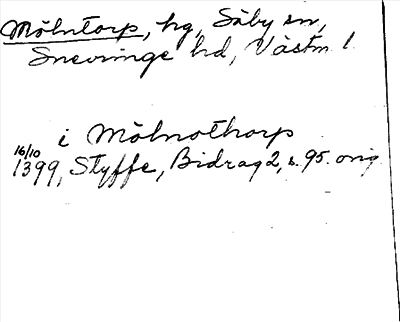 Mölntorp, hg, Säby sn,
Snevringe hd, Västm l.
i Mölnothorp
16/10
1399, Styffe, Bidrag 2, s. 95. orig